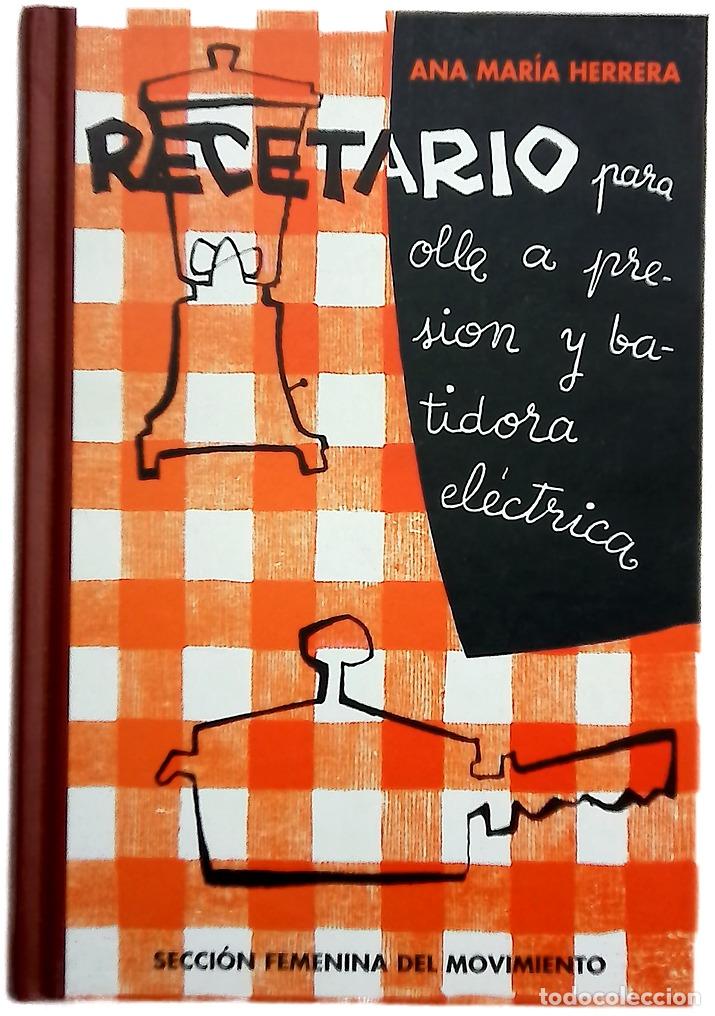 ANA MARÍA HERRERA
RECETARIO para
olla a pre-
sion y ba-
tidora
eléctrica
SECCIÓN FEMENINA DEL MOVIMIENTO
todocoleccion